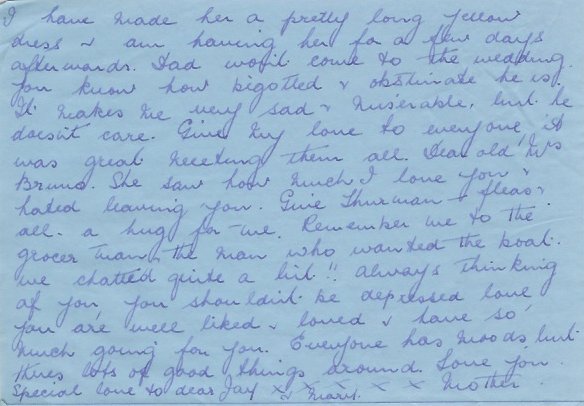 I have made her a pretty long yellow
dress & am having her for a few days
afterwards. Dad won't come to the wedding.
You know how bigotted & obstinate he is.
It makes me very sad & miserable, but he
doesn't care. Give my love to everyone, it
was great meeting them all. Dear old Mrs
Bruno. She saw how much I love you &
hated leaving you. Give Thurman & fleas &
all. a hug for me. Remember me to the
grocer man, the man who wanted the boat.
we chatted quite a bit!! always thinking
of you, you shouldn't be depressed love,
you are well liked & loved & have so
much going for you. Everyone has moods, but
theres lots of good things around. Love you
Special love to dear Jay & Mark. x x x x x x Mother.